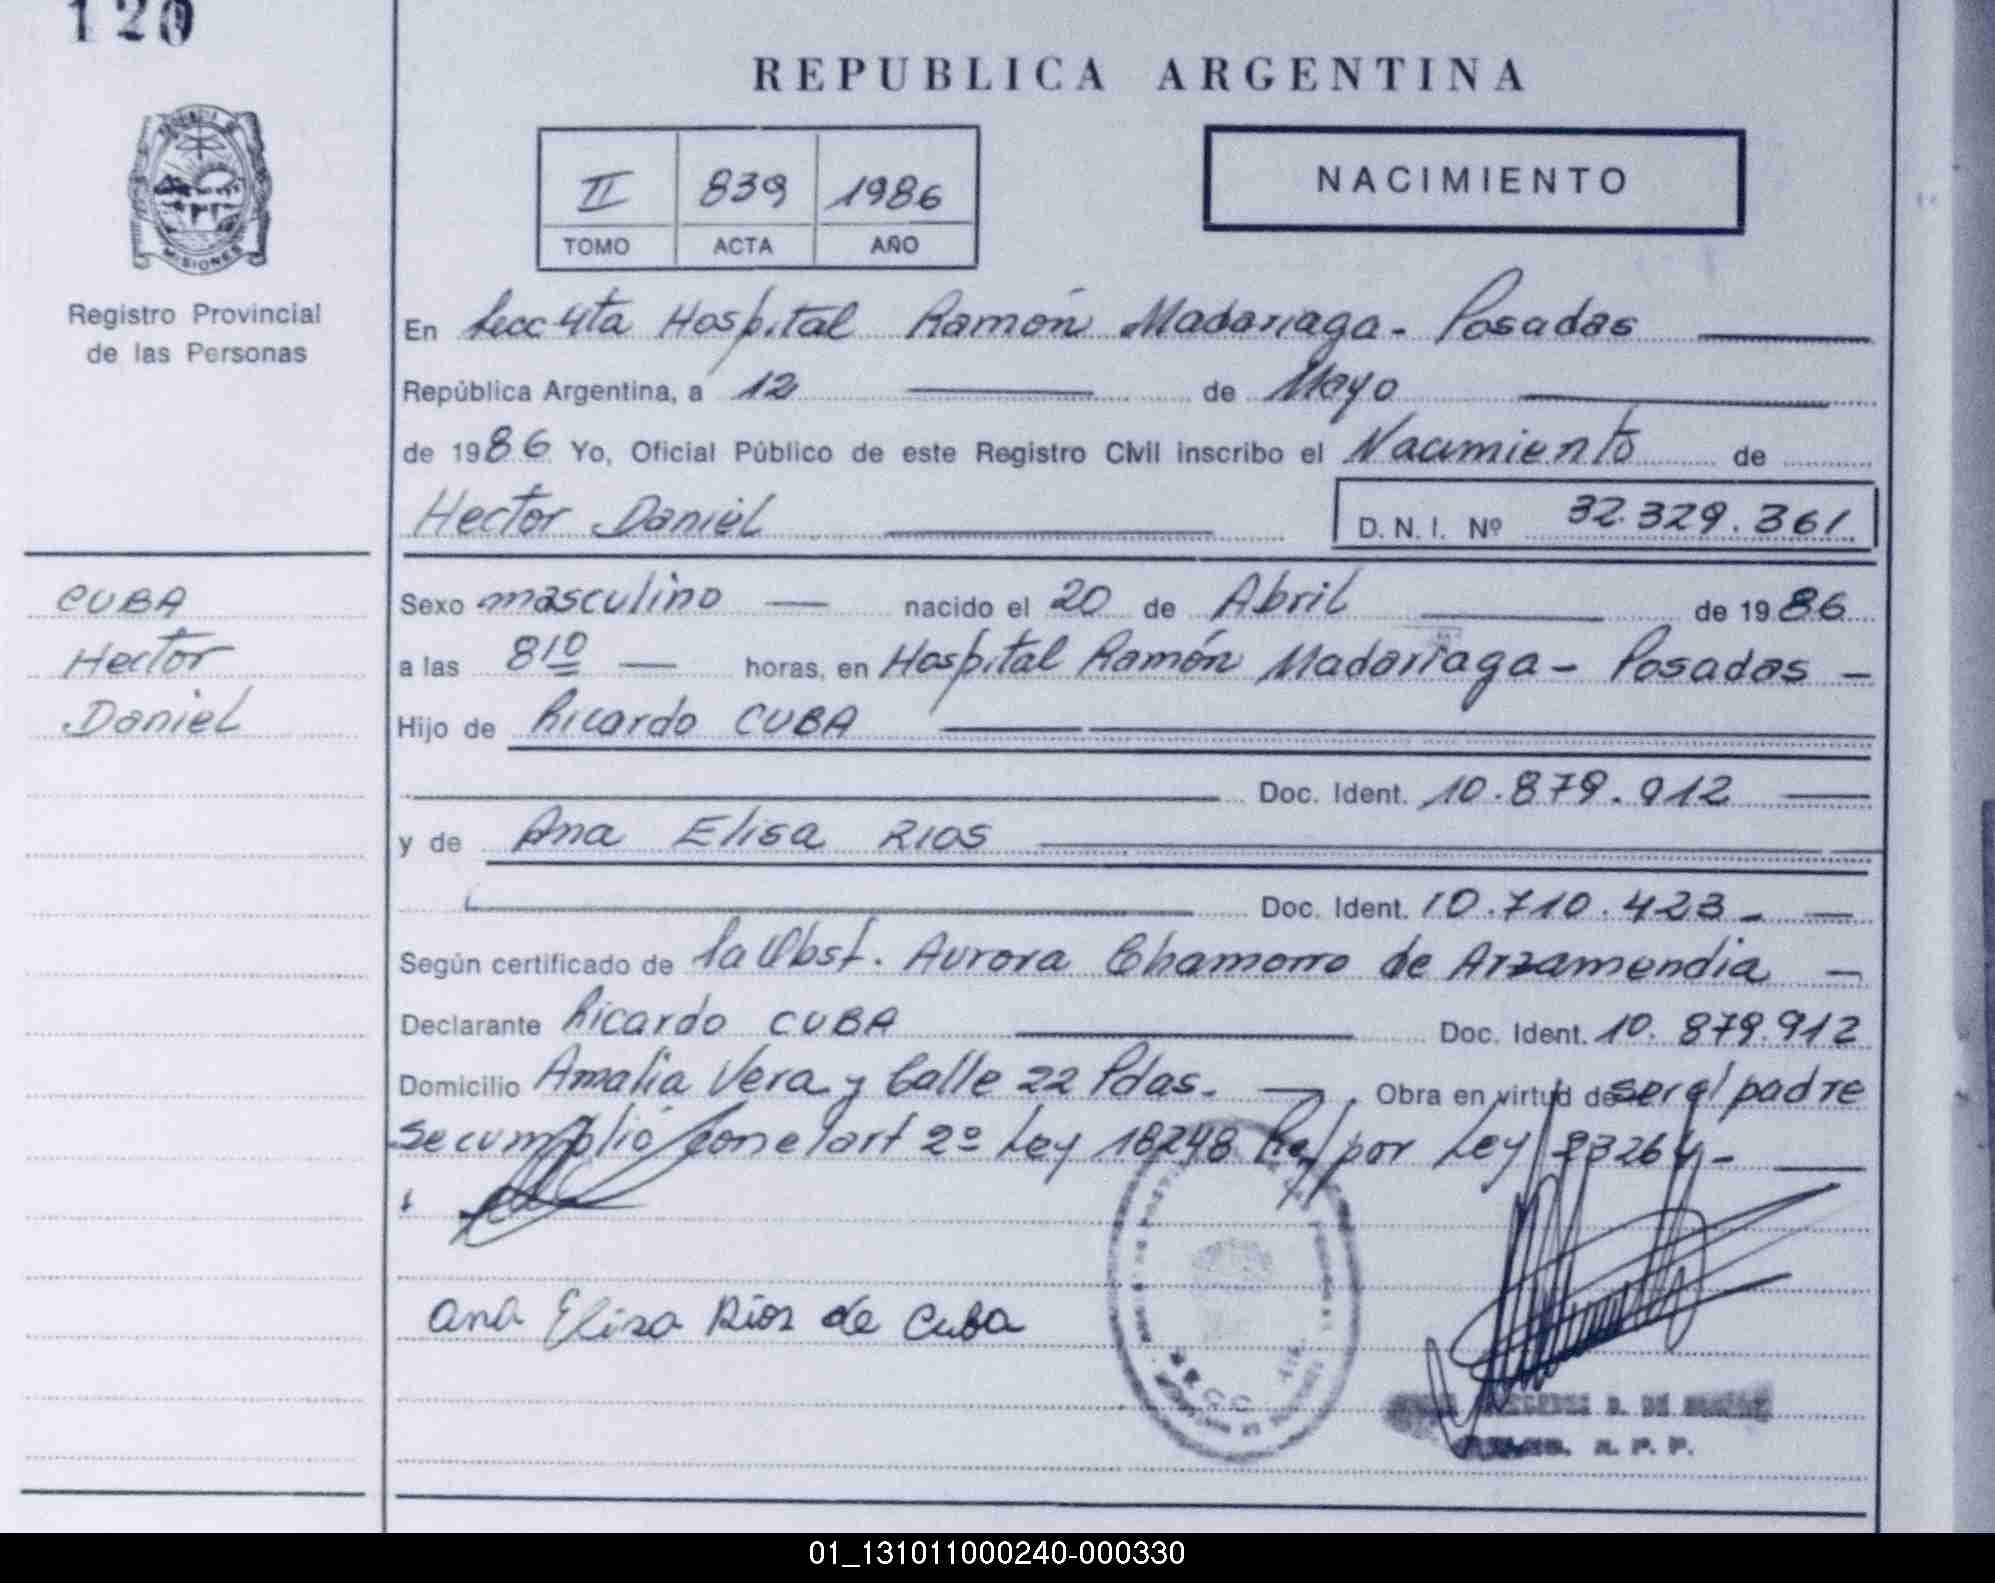 120
REPUBLICA ARGENTINA
MISIONES
Registro Provincial
de las Personas
II 839 1986
TOMO ACTA AÑO
NACIMIENTO
En Secc 4ta Hospital Ramón Madariaga - Posadas
República Argentina, a 12 de Mayo
de 1986 Yo, Oficial Público de este Registro Civil inscribo el Nacimiento de
Hector Daniel D.N.I. Nº 32.329.361
CUBA
Hector
Daniel
Sexo masculino nacido el 20 de Abril de 1986
a las 8 10 horas, en Hospital Ramón Madariaga - Posadas -
Hijo de Ricardo CUBA
Doc. Ident. 10.879.912
y de Ana Elisa RIOS
Doc. Ident. 10.710.423
Según certificado de la Obst. Aurora Chamorro de Arzamendia
Declarante Ricardo CUBA Doc. Ident. 10.879.912
Domicilio Amalia Vera y Calle 22 Pdas. Obra en virtud de ser el padre
Se cumplió con el art 2º Ley 18248 por Ley 23264 -
Ana Elisa Rios de Cuba
01_131011000240-000330